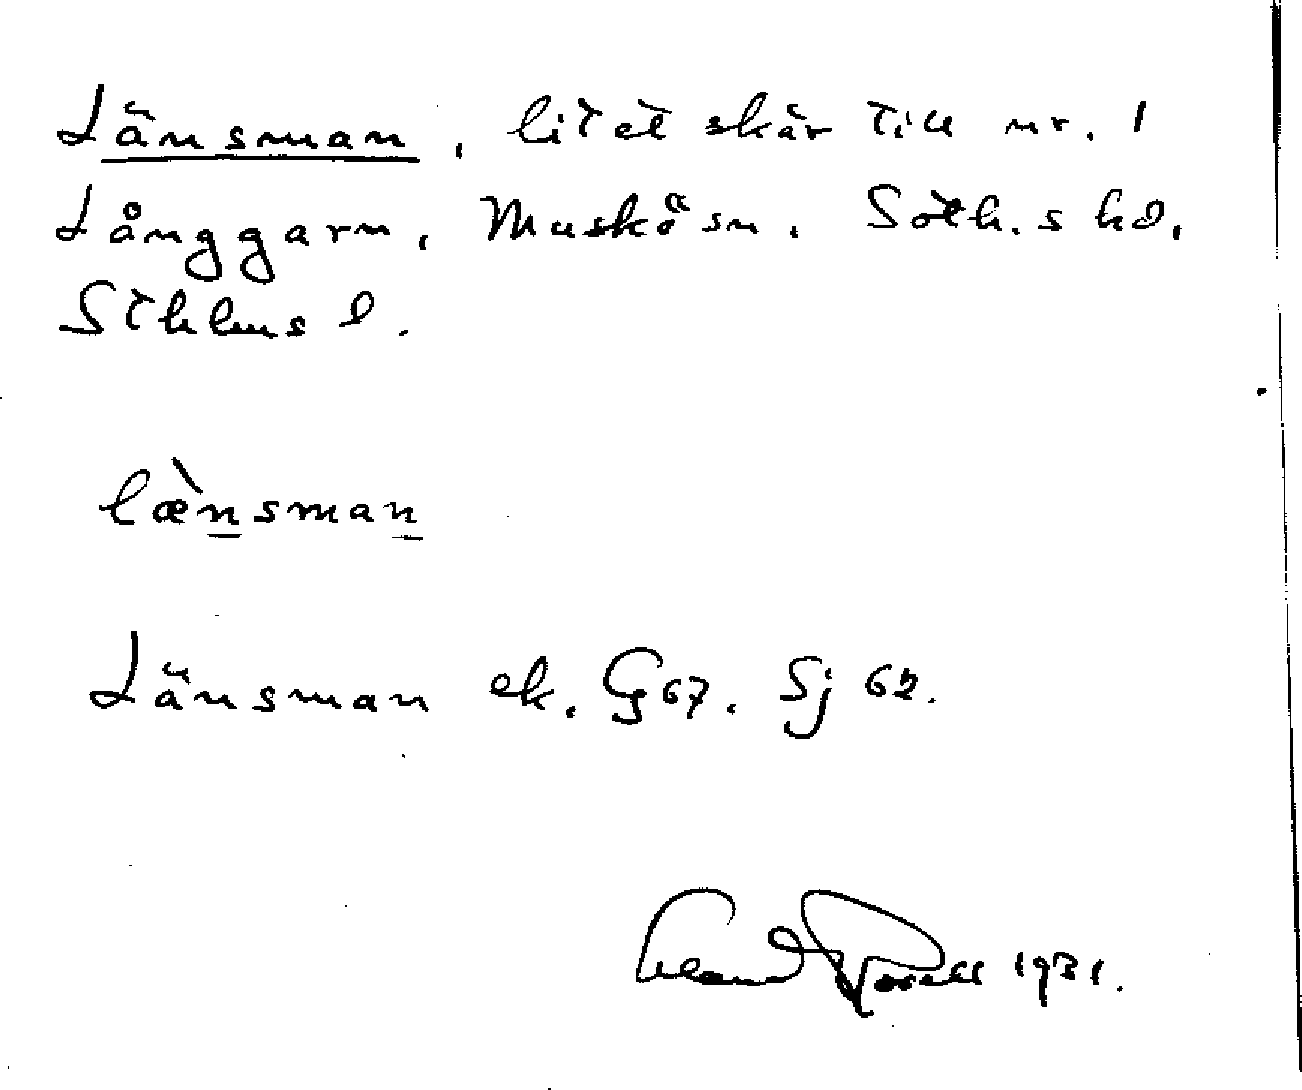 Länsman, litet skär till nr. 1
Långgarn, Muskö sn. Soth.s hd.
Sthlms l.
læ̀nsman
Länsman ek. G 67. Sj 62.
1931.